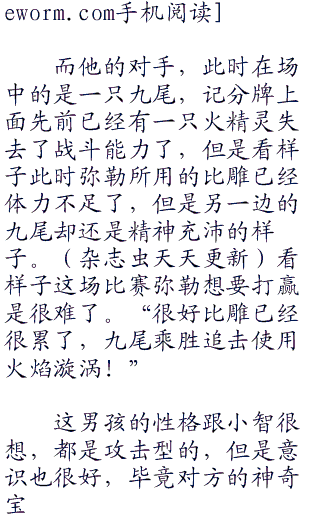 eworm.com手机阅读]
而他的对手，此时在场
中的是一只九尾，记分牌上
面先前已经有一只火精灵失
去了战斗能力了，但是看样
子此时弥勒所用的比雕已经
体力不足了，但是另一边的
九尾却还是精神充沛的样
子。（杂志虫天天更新）看
样子这场比赛弥勒想要打赢
是很难了。“很好比雕已经
很累了，九尾乘胜追击使用
火焰漩涡！”
这男孩的性格跟小智很
想，都是攻击型的，但是意
识也很好，毕竟对方的神奇
宝